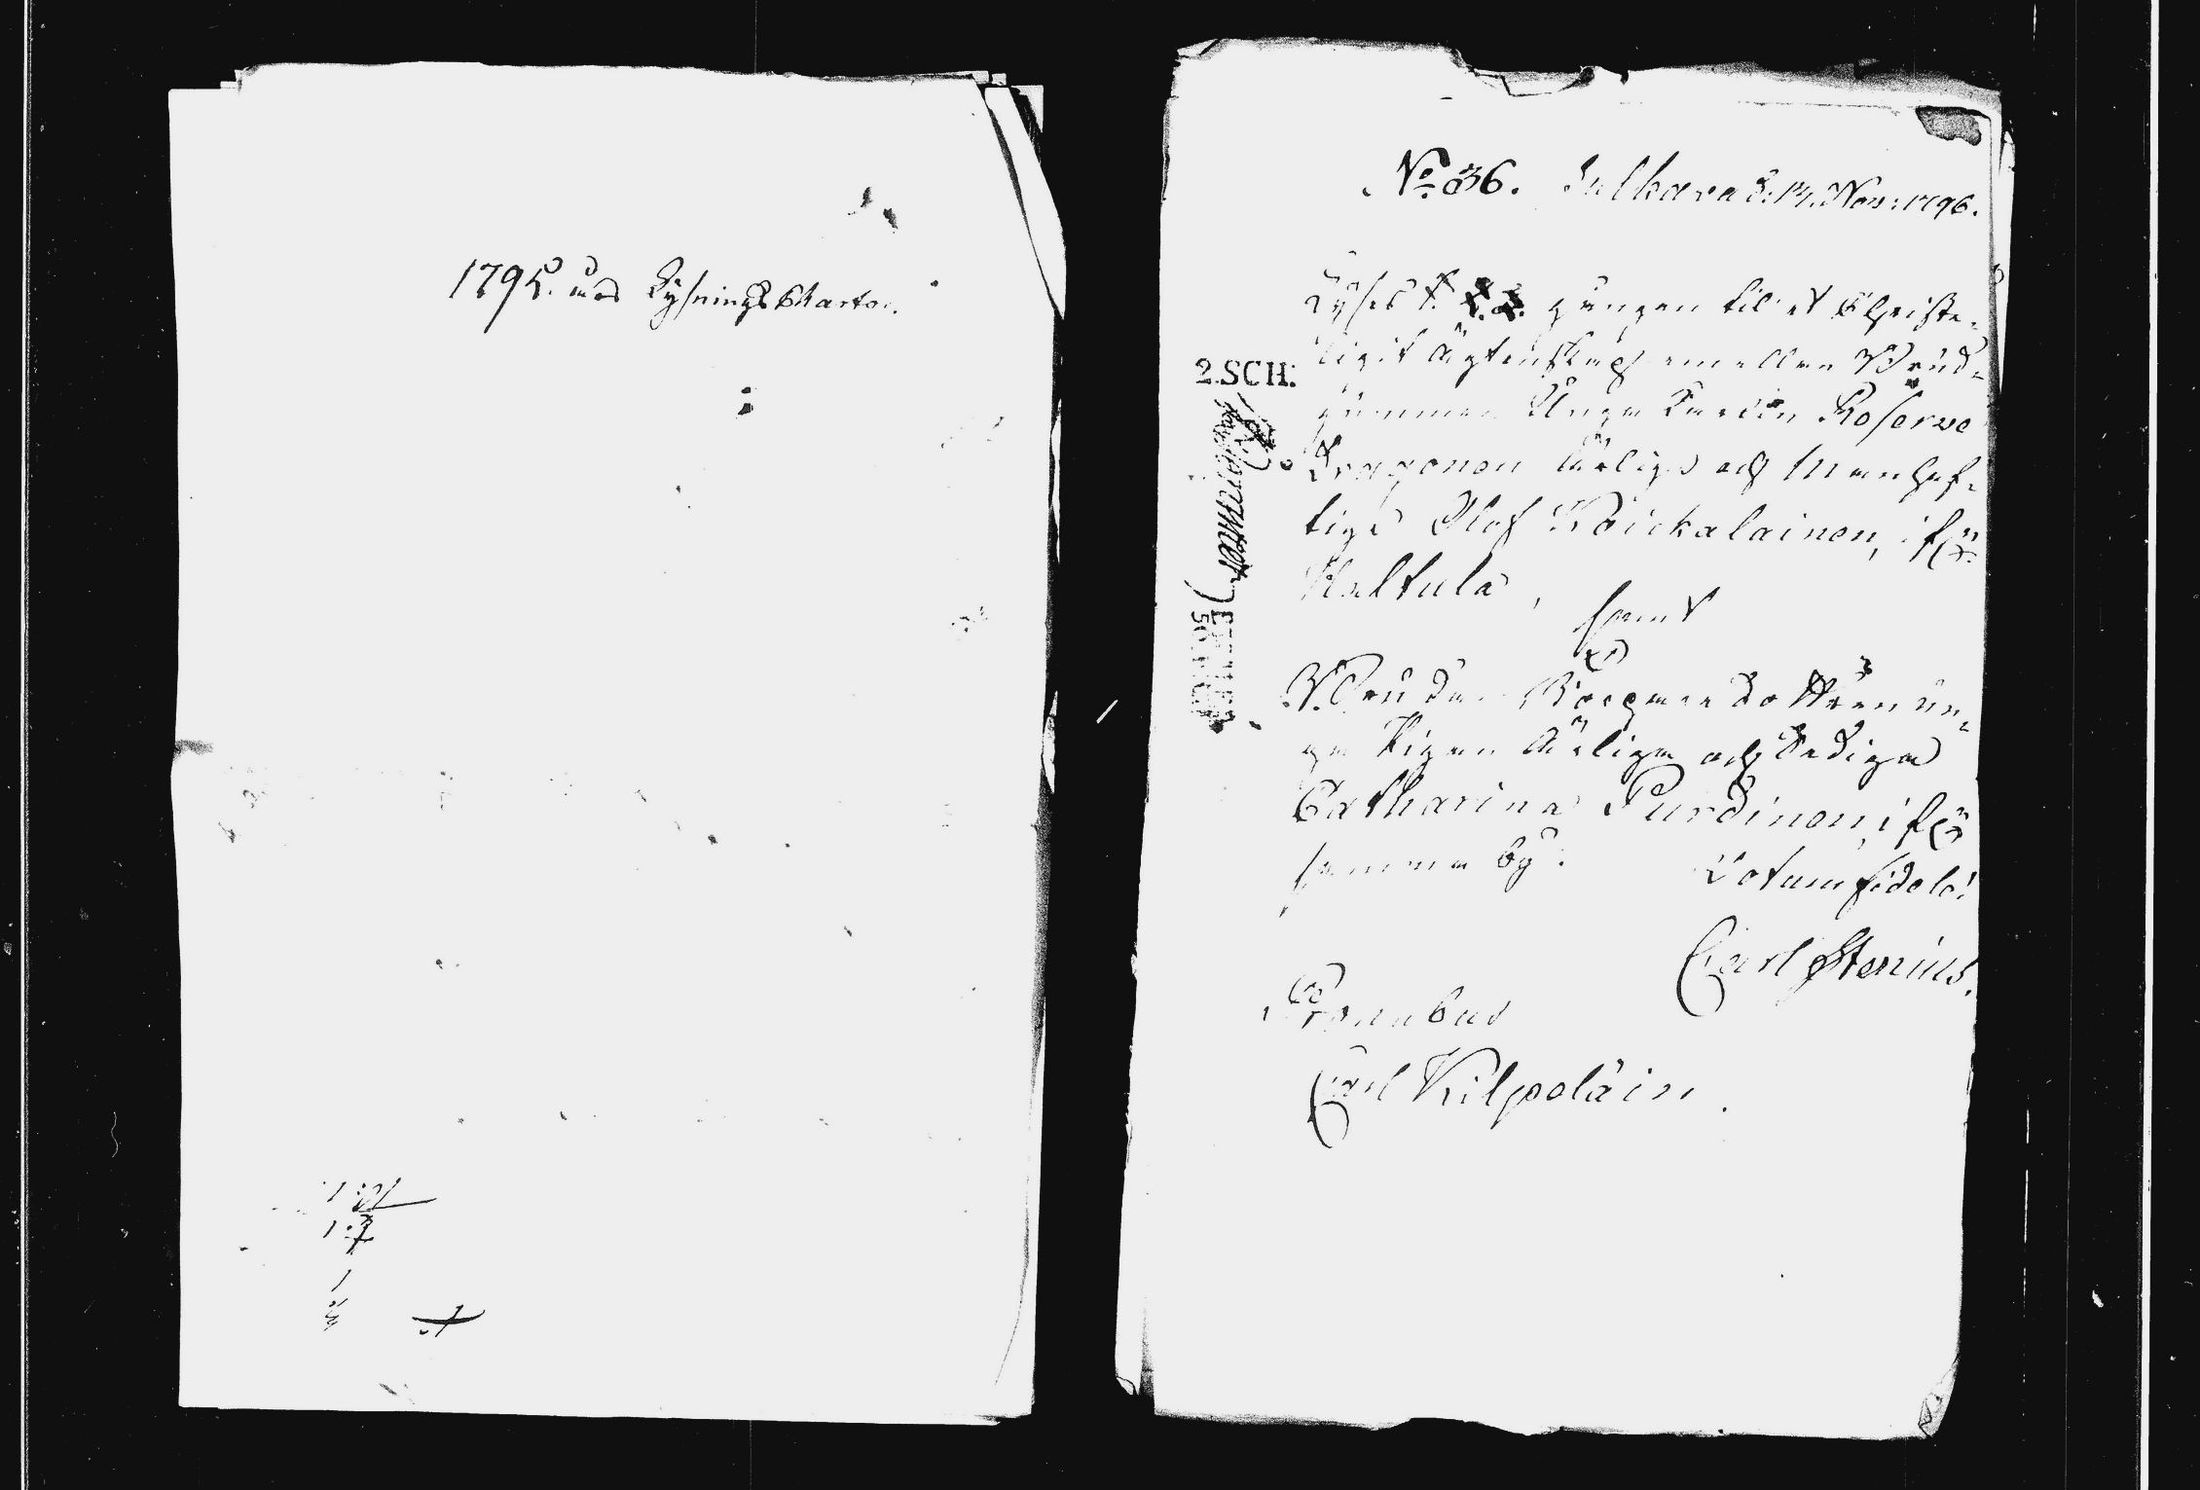 1795. års Lysnings Chartor.
No 36. Sulkava d. 14. Nov: 1796.
Lyses 1. 2. 3. gången til et Christe-
ligit ägtenskap emellan Brud-
gummen Unga Karlen Reserve
2.SCH:
Dragonen ärlige och Manhaf-
tige Olof Koickalainen, ifrån
Kaltula,
samt
Bruden Borgare dottren un-
ga Pigan ärliga och Dediga
Catharina Purdinen, ifrån
samma by.
Votum fidele!
Carl Stenius.
Pronubus
Carl Kilpeläin.